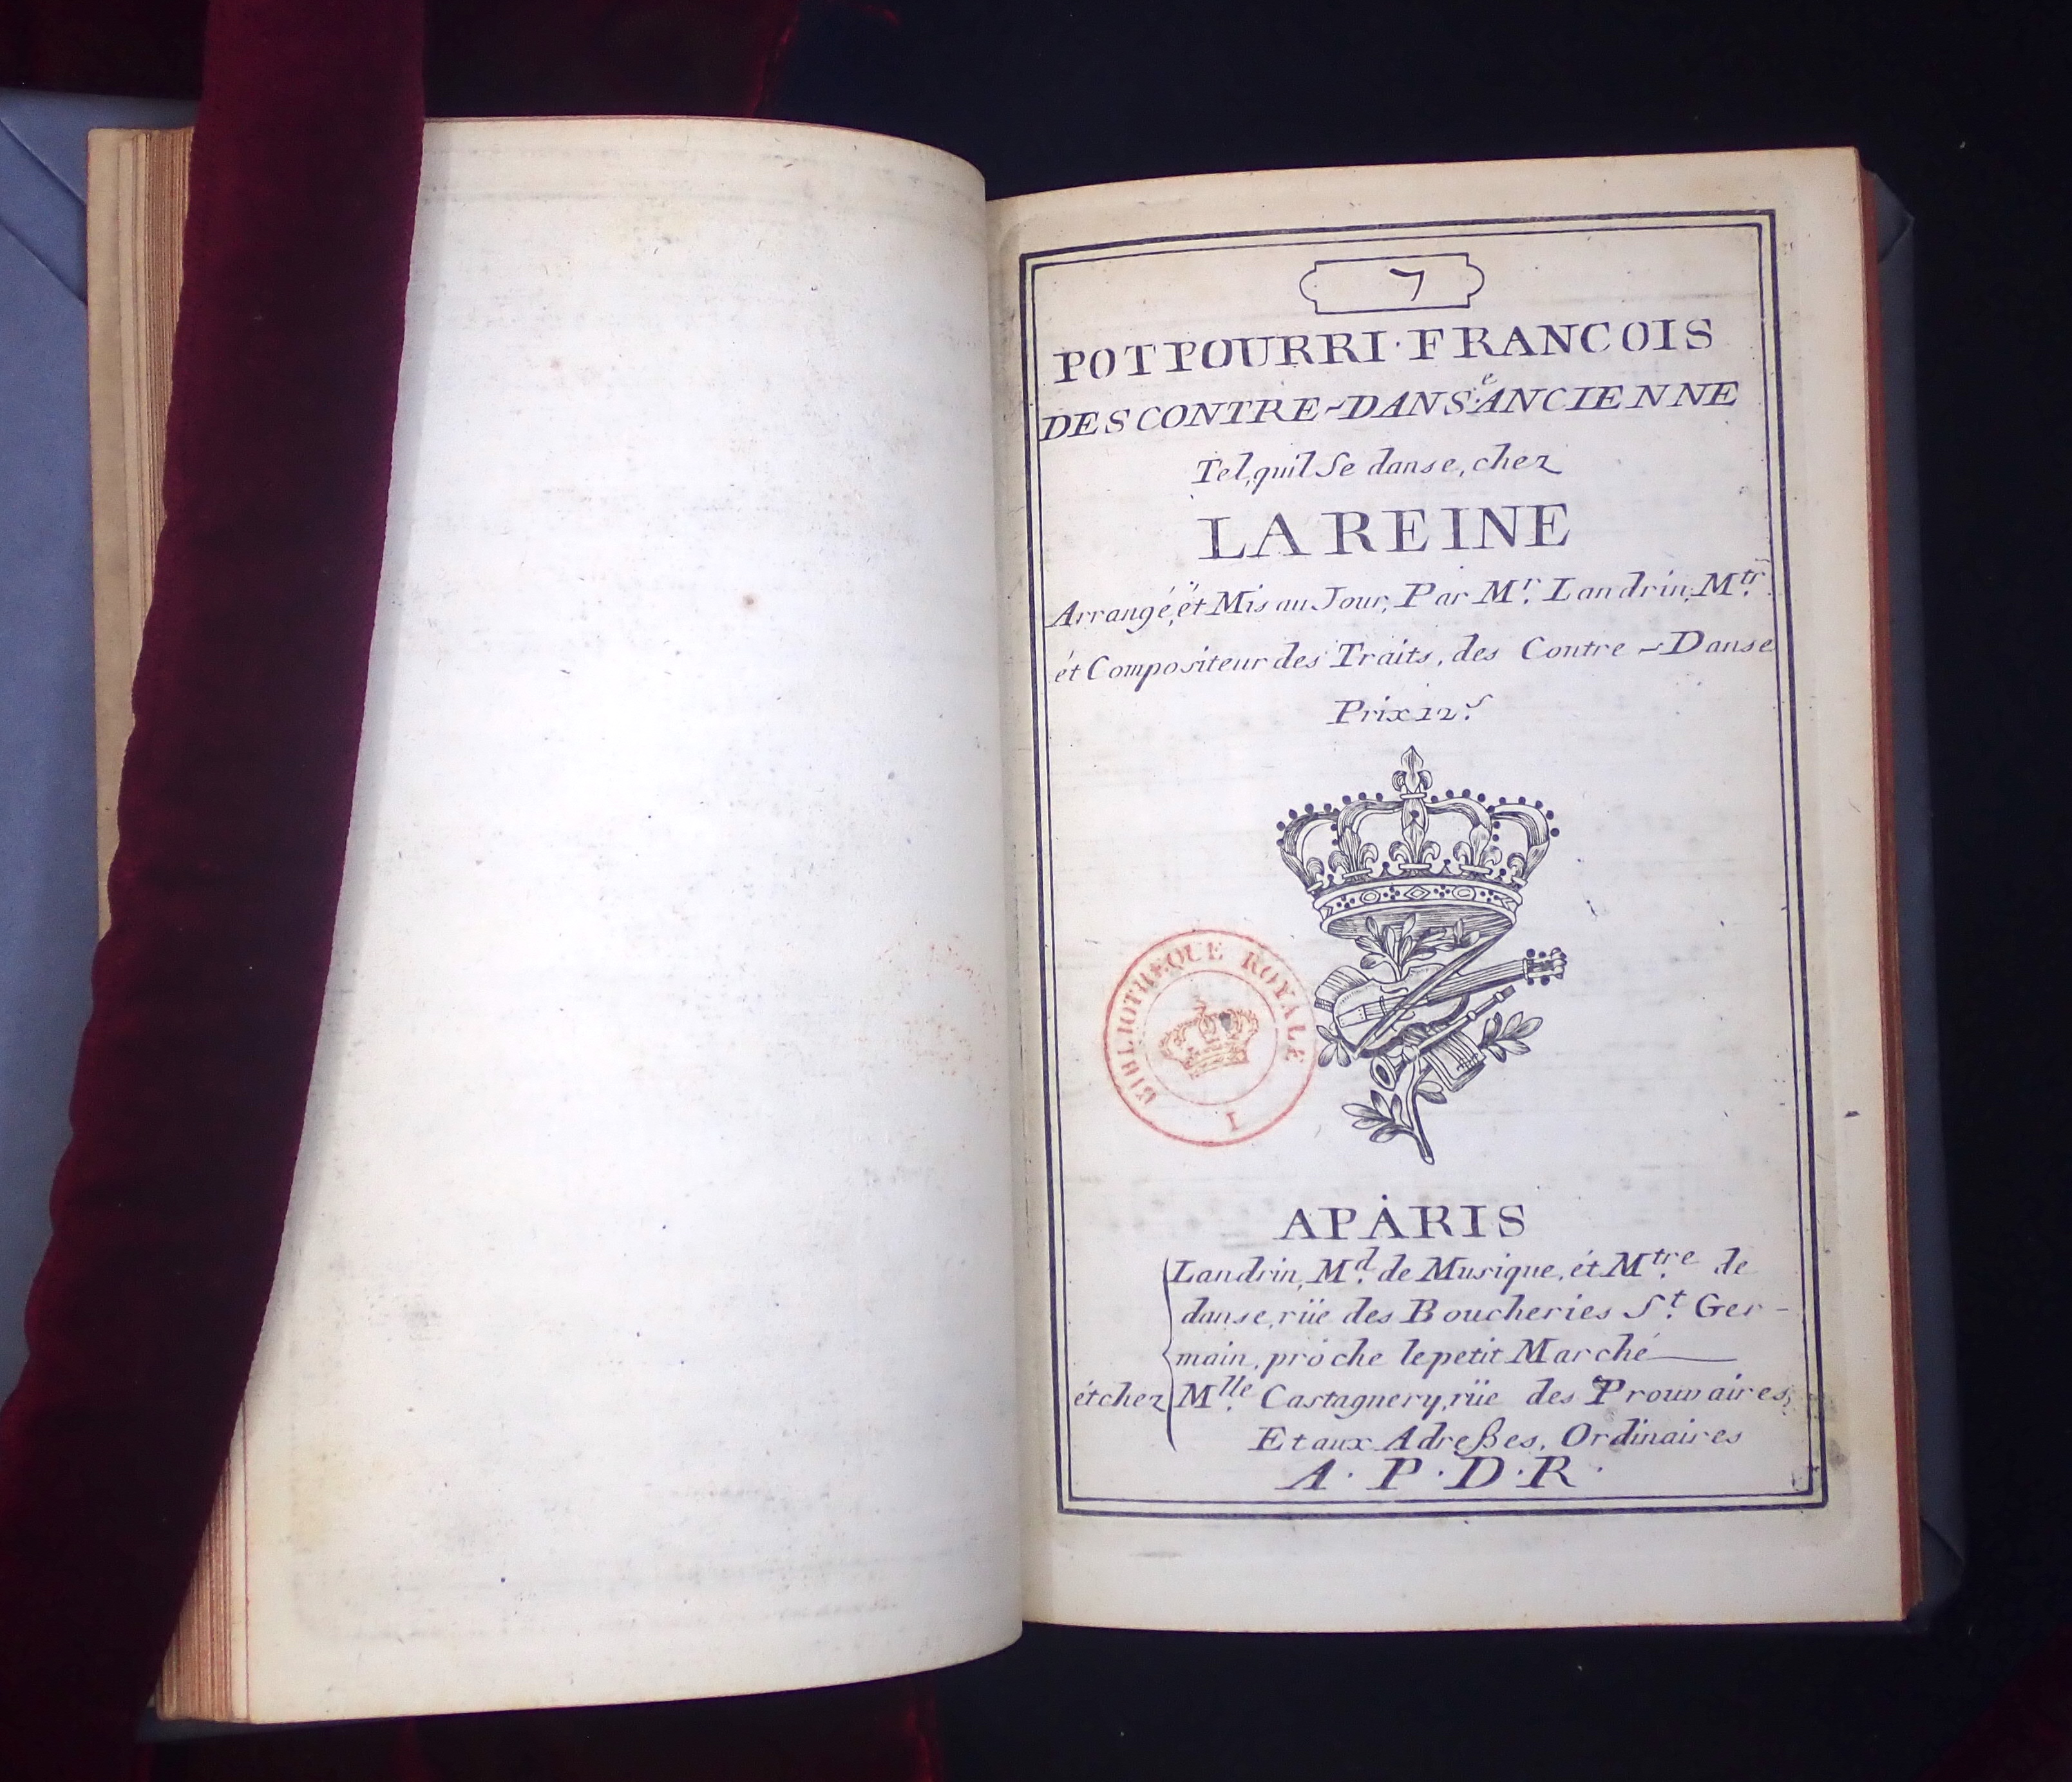 7
POTPOURRI·FRANCOIS
DES CONTRE-DANSᵉ ANCIENNE
Tel, quil Se danse, chez
LA REINE
Arrangé, ét Mis au Jour, Par Mʳ. Landrin, Mᵗʳ.
ét Compositeur des Traits, des Contre-Danse
Prix 12ˢ
BIBLIOTHEQUE ROYALE
I
A PARIS
Landrin, Mᵈ. de Musique, ét Mᵗʳᵉ. de
danse, rüe des Boucheries Sᵗ. Ger-
main, proche le petit Marché
ét chez Mˡˡᵉ. Castagnery, rüe des Prouvaires,
Et aux Adreßes, Ordinaires
A·P·D·R·